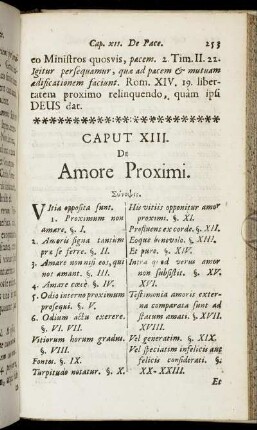 Cap. XII. De Pace. 253
eo Ministros quosvis, pacem. 2. Tim. II. 22.
Igitur persequamur, qua ad pacem & mutuam
ædificationem faciunt. Rom. XIV. 19. liber-
tatem proximo relinquendo, quam ipsi
DEUS dat.
CAPUT XIII.
De
Amore Proximi.
Σύνοψις.
Vitia opposita sunt.
1. Proximum non
amare. §. I.
2. Amoris signa tantùm
præ se ferre. §. II.
3. Amare non nisi eos, qui
nos amant. §. III.
4. Amare cœcè. §. IV.
5. Odio interno proximum
prosequi. §. V.
6. Odium actu exerere.
§. VI. VII.
Vitiorum horum gradus.
§. VIII.
Fontes. §. IX.
Turpitudo notatur. §. X.
His vitiis opponitur amor
proximi. §. XI.
Profluens ex corde. §. XII.
Eoque benevolo. §. XIII.
Et puro. §. XIV.
Intra quod verus amor
non subsistit. §. XV.
XVI.
Testimonia amoris exter-
na comparata sunt ad
statum amati. §. XVII.
XVIII.
Vel generatim. §. XIX.
Vel speciatim infelicis aut
felicis considerati. §.
XX-XXIII.
Et